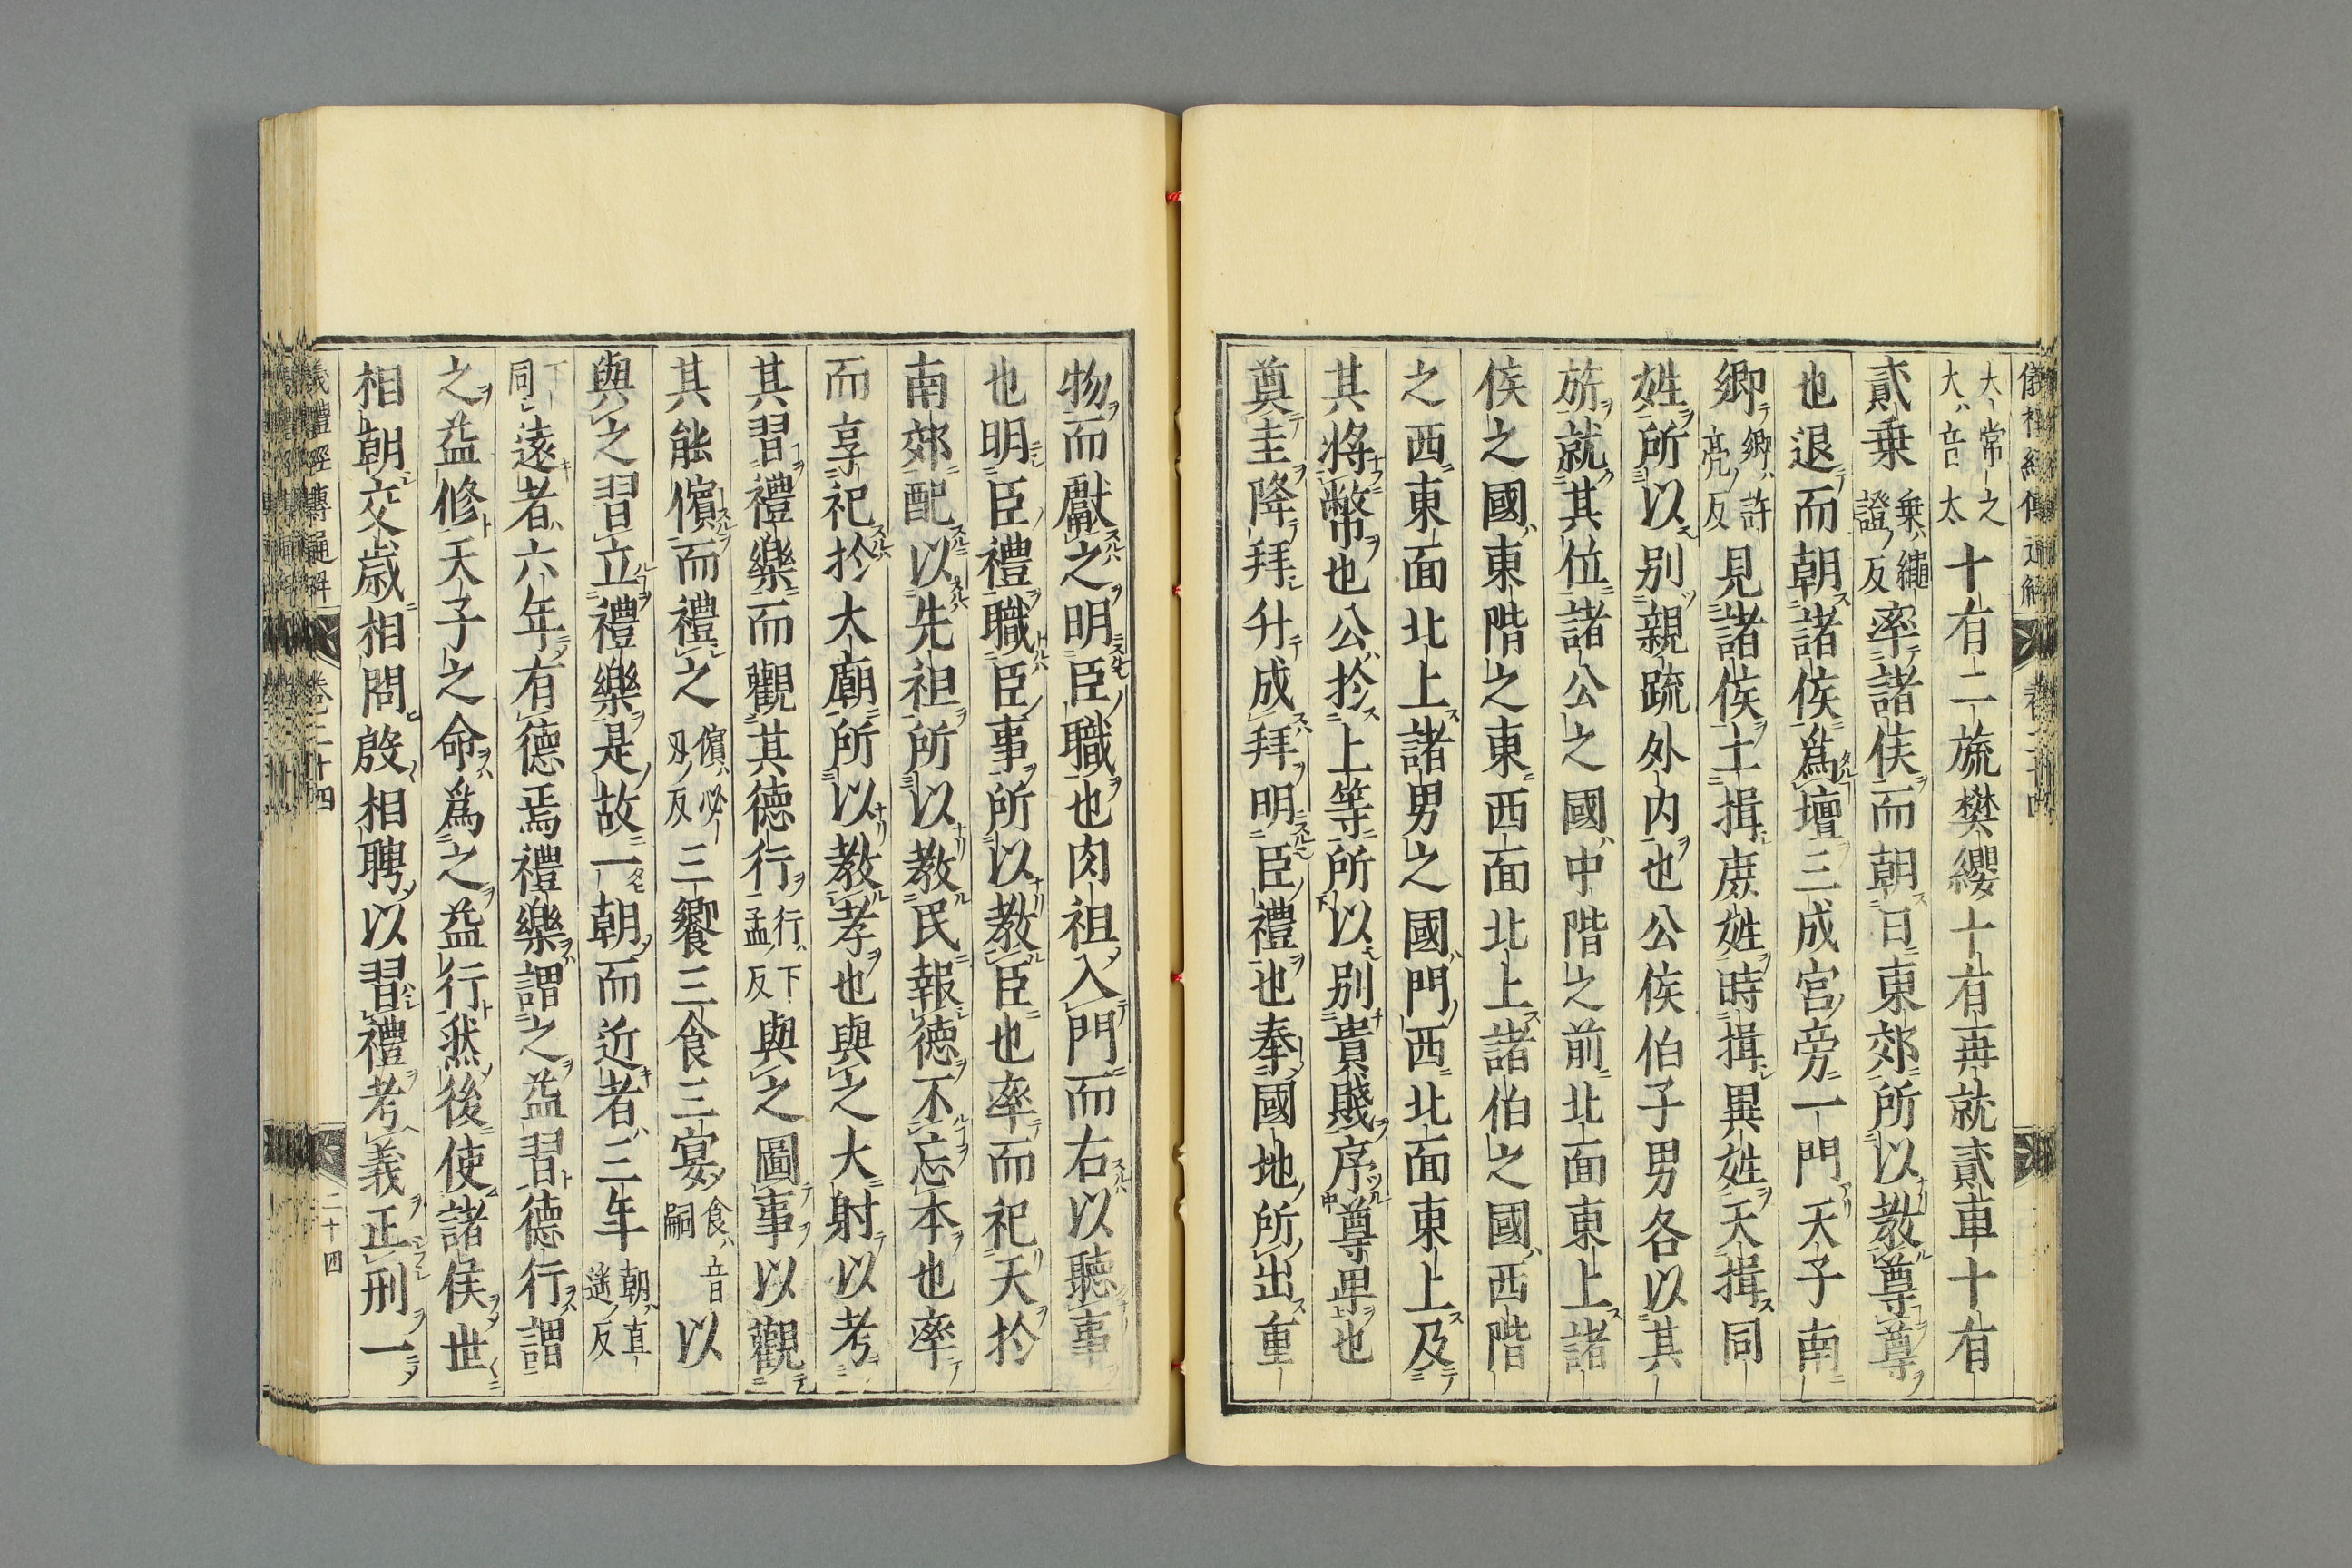 大常之大音太十有二旒樊纓十有再就貳車十有
貳乗乗繩證反率諸侯而朝日東郊所以教尊尊
也退而朝諸侯爲壇三成宮旁一門天子南
卿卿許亮反見諸侯土揖庶姓時揖異姓天揖同
姓所以别親疏外内也公侯伯子男各以其
旂就其位諸公之國中階之前北面東上諸
侯之國東階之東西面北上諸伯之國西階
之西東面北上諸男之國門西北面東上及
其將幣也公於上等所以别貴賤序尊卑也
奠圭降拜升成拜明臣禮也奉國地所出重
物而獻之明臣職也肉袒入門而右以聽事
也明臣禮職臣事所以教臣也率而祀天於
南郊配以先祖所以教民報德不忘本也率
而享祀於大廟所以教孝也與之大射以考
其習禮樂而觀其德行行下孟反與之圖事以觀
其能儐而禮之儐必刄反三饗三食三宴食音嗣以
與之習立禮樂是故一朝而近者三年朝直遙反
下同遠者六年有德焉禮樂謂之益習德行謂
之益修天子之命爲之益行然後使諸侯世
相朝交歲相問殷相聘以習禮考義正刑一
卷二十四
二十四